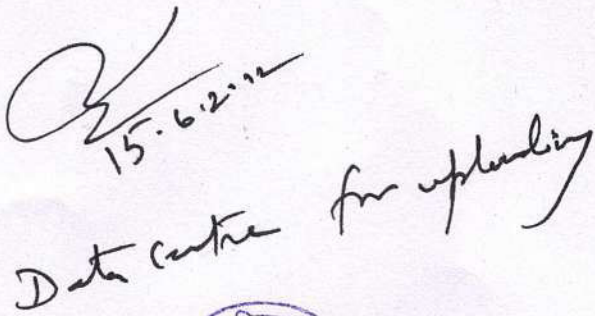 15.6.2012
Data centre for uploading